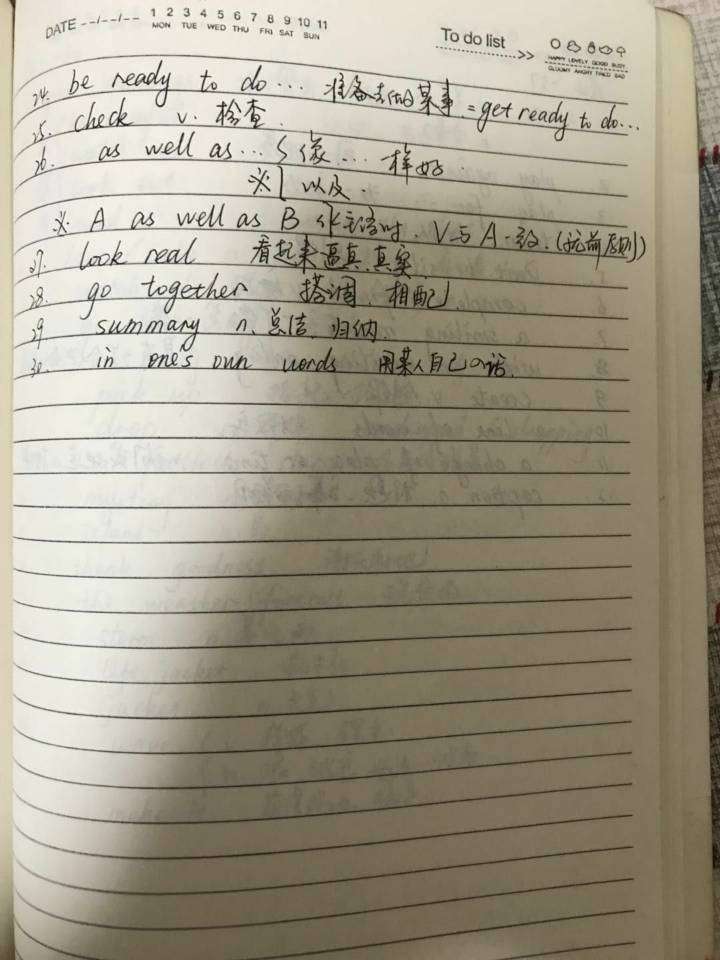 DATE --/--/--
1 2 3 4 5 6 7 8 9 10 11
MON TUE WED THU FRI SAT SUN
To do list >>
HAPPY LOVELY GOOD BUSY
GLOOMY ANGRY TIRED SAD
24. be ready to do... 准备去做某事 = get ready to do...
25. check v. 检查.
26. as well as... { 像... 一样好.
※ 以及.
※ A as well as B 作主语时, V与A一致. (就前原则)
27. look real 看起来逼真,真实.
28. go together 搭调 相配
29 summary n. 总结, 归纳.
30. in one's own words 用某人自己的话.